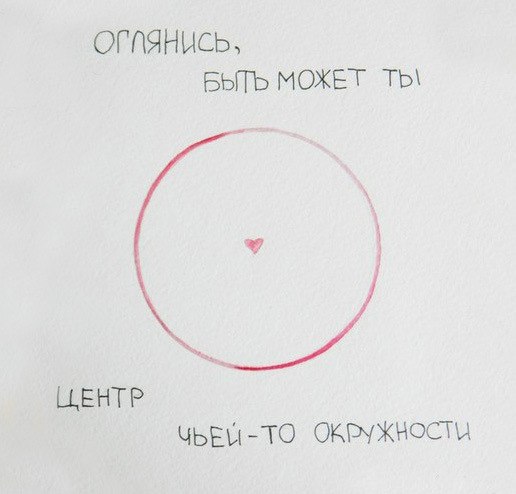 ОГЛЯНИСЬ,
БЫТЬ МОЖЕТ ТЫ
ЦЕНТР
ЧЬЕЙ-ТО ОКРУЖНОСТИ